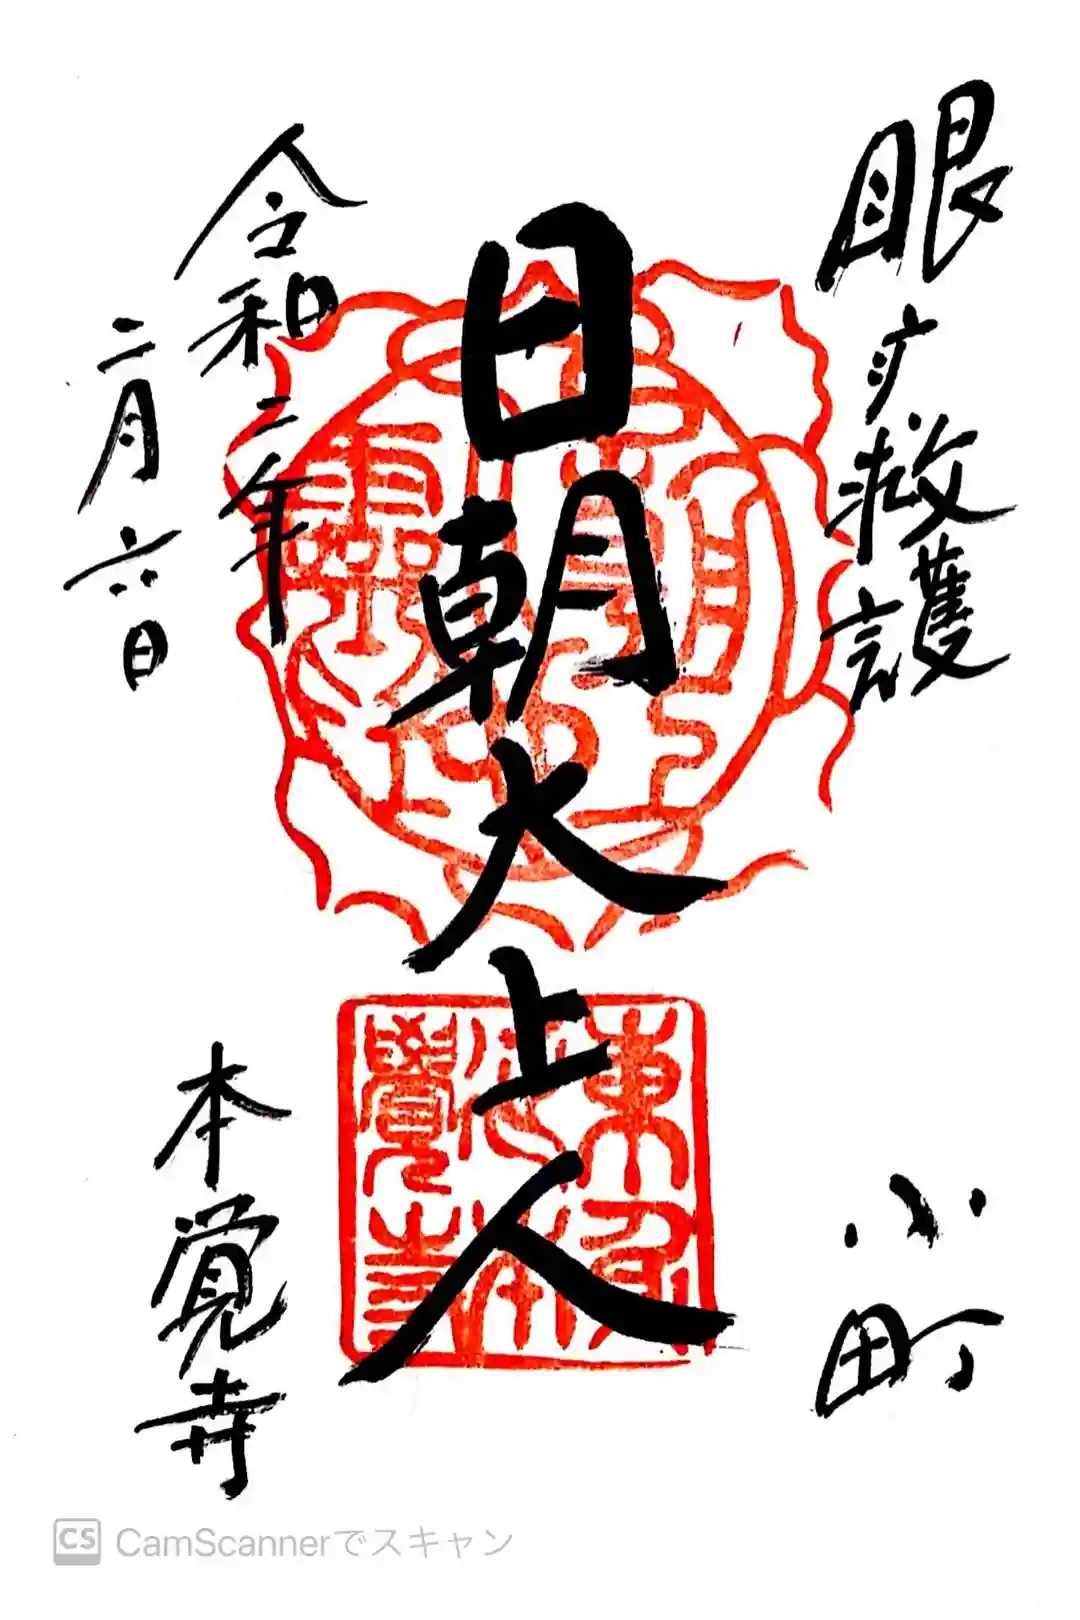 眼疾救護
小町
日朝大上人
令和二年
二月六日
本覚寺
CS CamScannerでスキャン